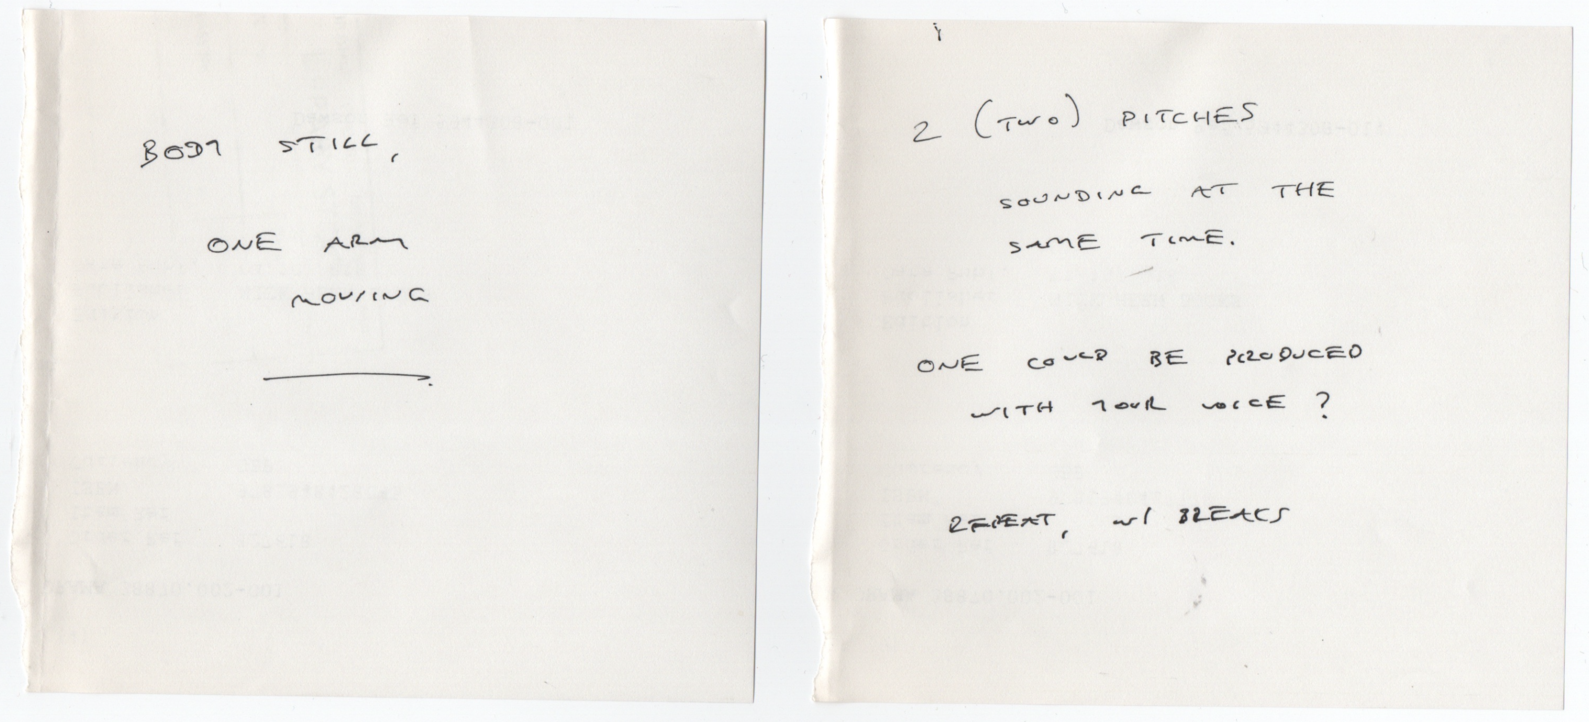 BODY STILL,
ONE ARM
MOVING
2 (TWO) PITCHES
SOUNDING AT THE
SAME TIME.
ONE COULD BE PRODUCED
WITH YOUR VOICE ?
REPEAT, w/ BREAKS